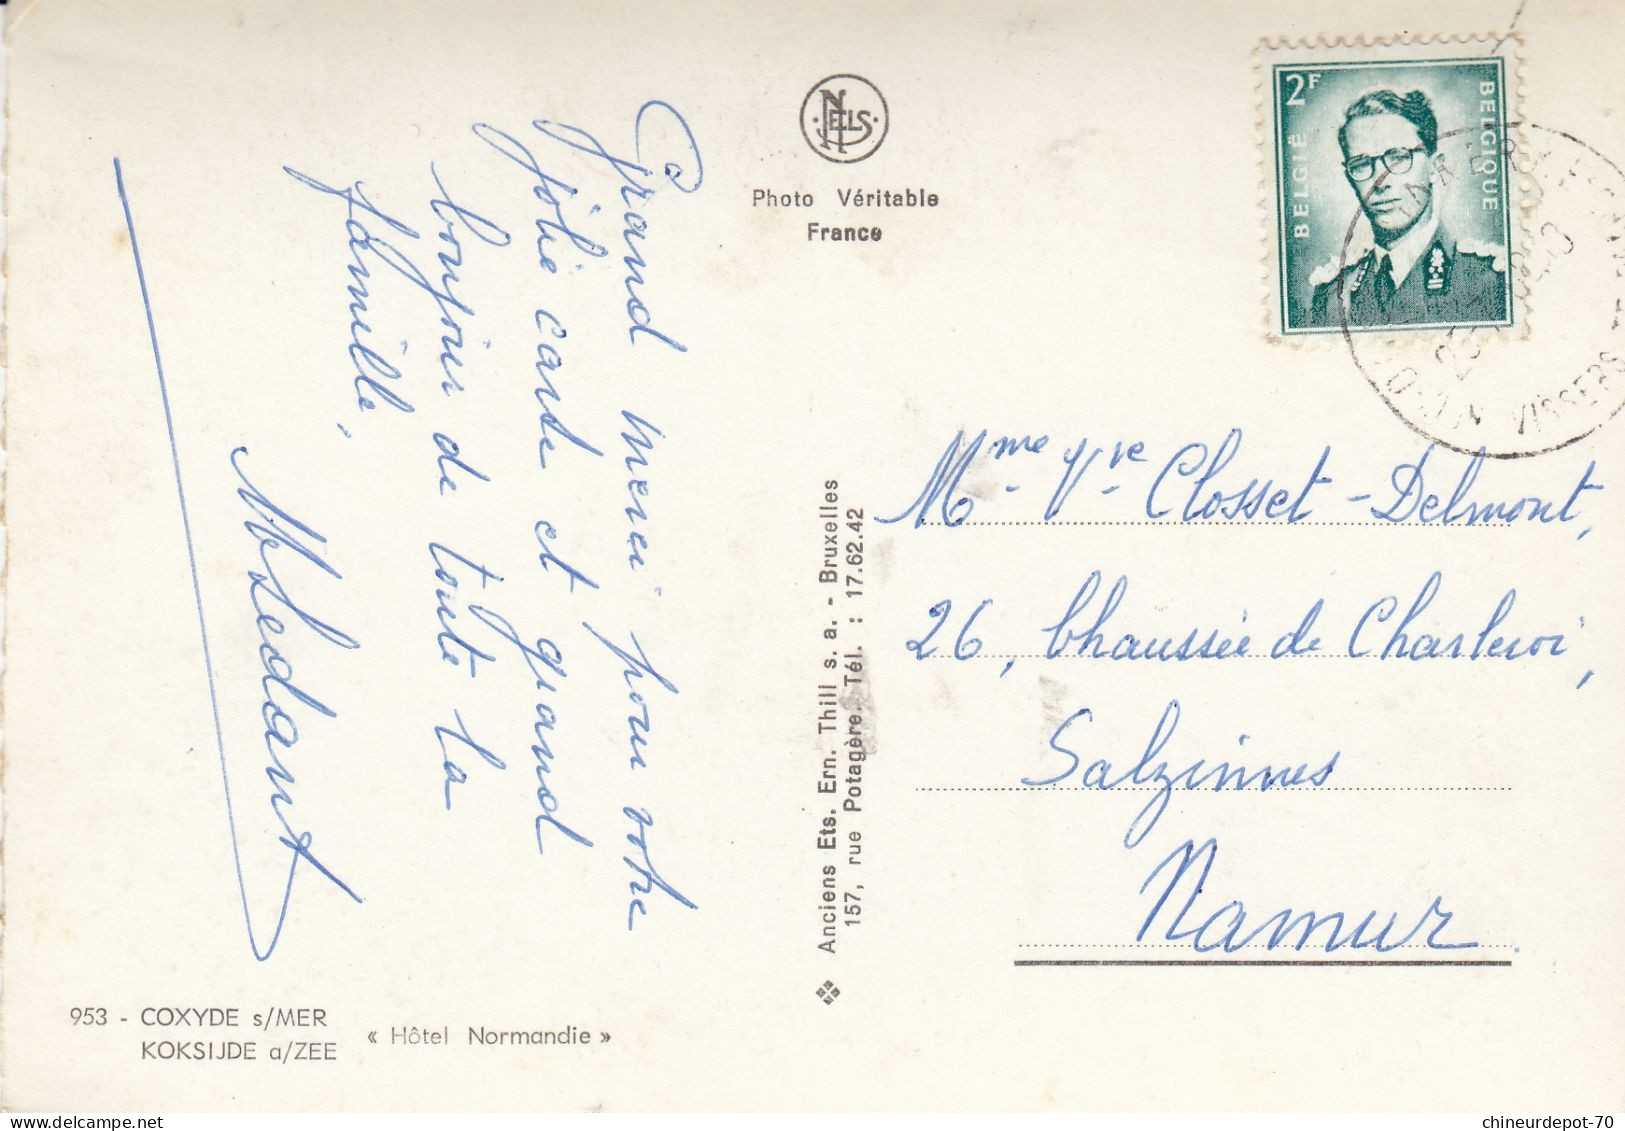 Grand merci pour votre
jolie carde et grand
bonjour de toute la
famille,
MLedant
NELS
Photo Véritable
France
2F
BELGIË
BELGIQUE
VISSERS
Mme Vve Closset-Delmont,
26, Chaussée de Charleroi,
Salzinnes
Namur.
Anciens Ets. Ern. Thill s. a. - Bruxelles
157, rue Potagère. Tél. : 17.62.42
953 - COXYDE s/MER
KOKSIJDE a/ZEE
« Hôtel Normandie »
chineurdepot-70